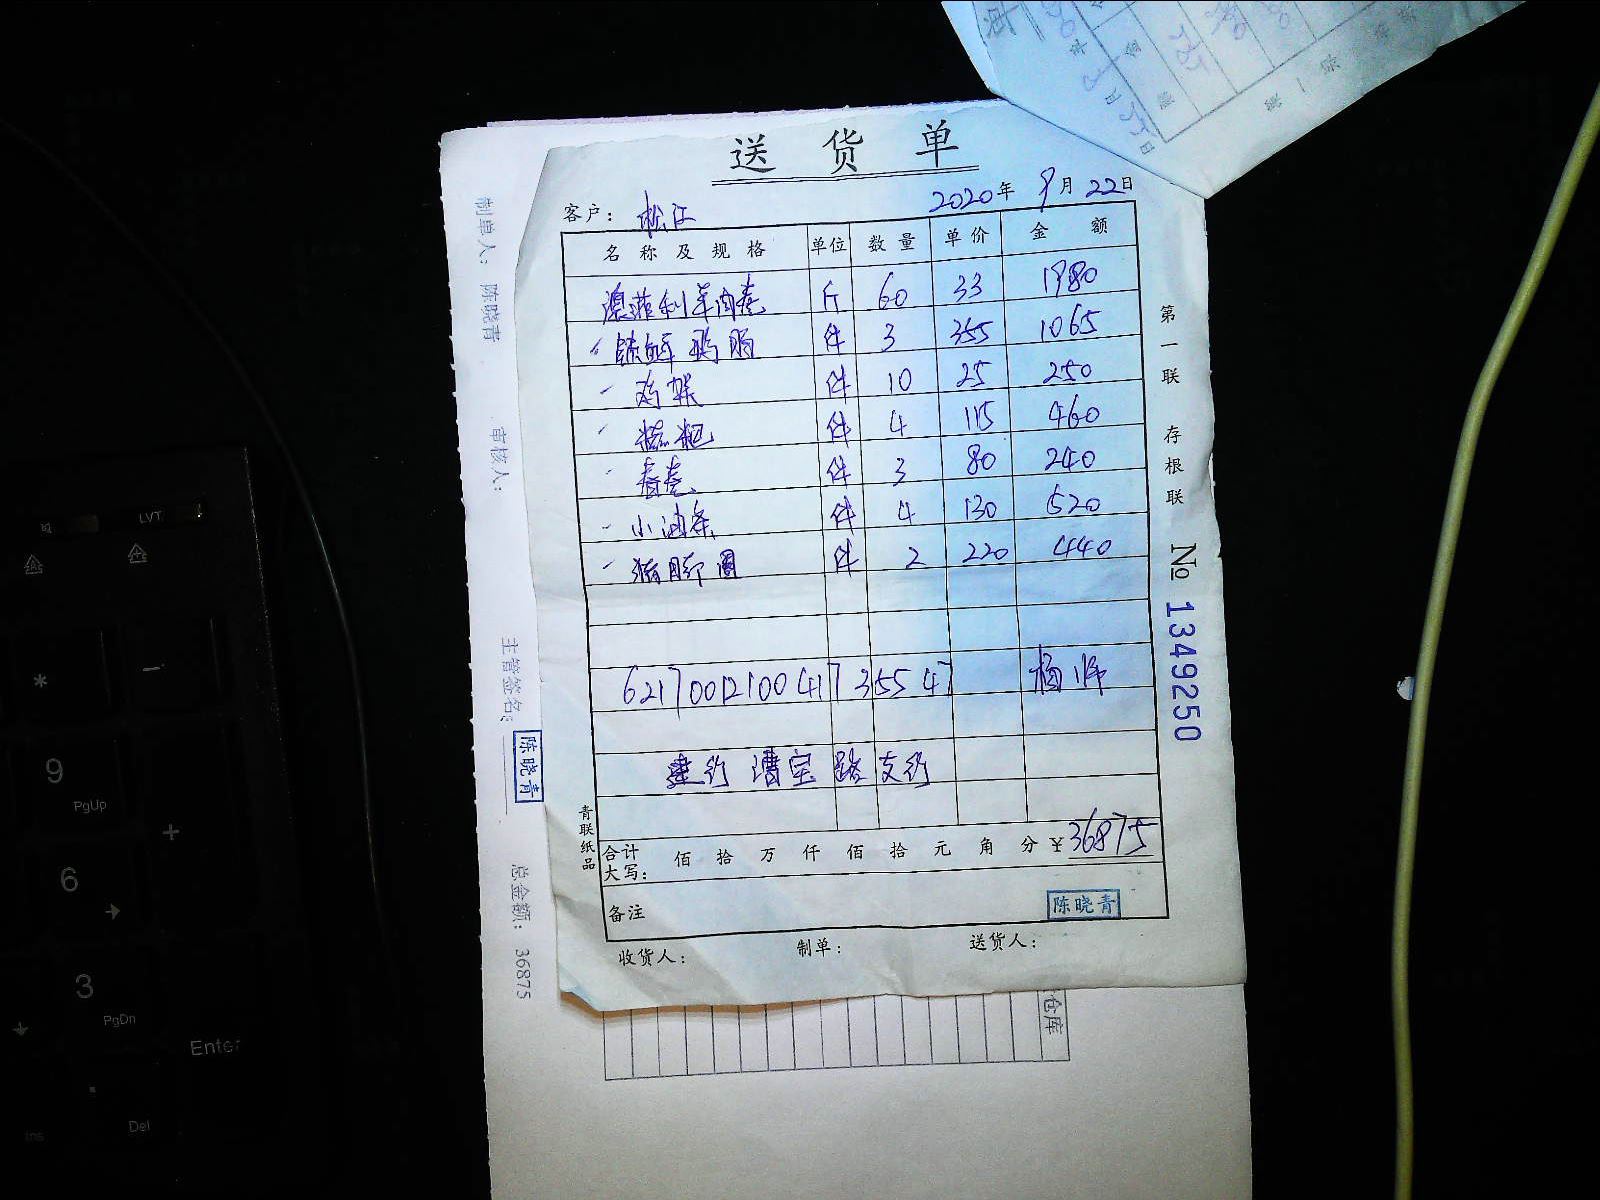 送货单
2020年9月22日
客户: 松江
名称及规格 单位 数量 单价 金额
澳菲利羊肉卷 斤 60 33 1980
鸭肠 件 3 355 1065
鸡架 件 10 25 250
糍粑 件 4 115 460
春卷 件 3 80 240
小油条 件 4 130 520
猪脚圈 件 2 220 440
6217001210041735547 杨师
建行漕宝路支行
合计大写: 佰 拾 万 仟 佰 拾 元 角 分 ¥36875
备注 陈晓青
收货人: 制单: 送货人:
第一联 存根联
№ 1349250
青联纸品
制单人: 陈晓青
审核人:
主管签名: 陈晓青
总金额: 36875
仓库
LVT
*
-
9
PgUp
+
6
3
PgDn
Enter
Ins
Del